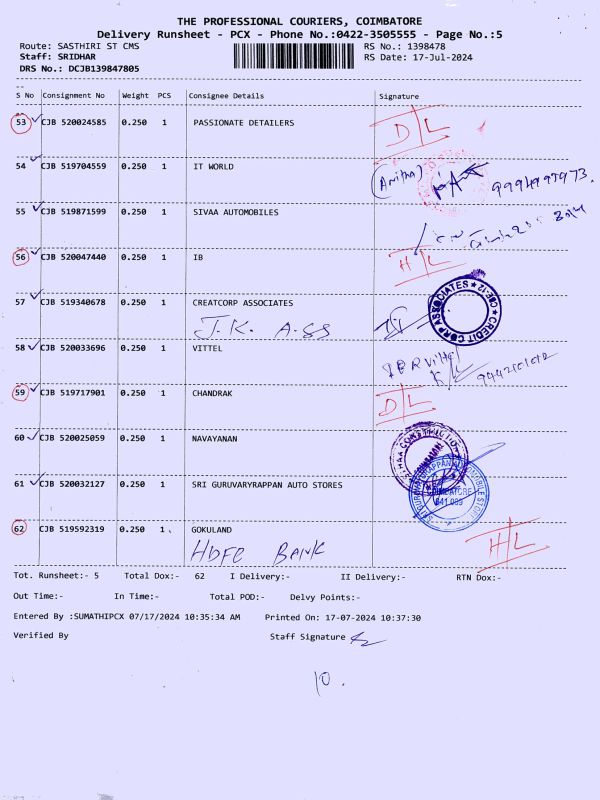 THE PROFESSIONAL COURIERS, COIMBATORE
Delivery Runsheet - PCX - Phone No.:0422-3505555 - Page No.:5
Route: SASTHIRI ST CMS RS No.: 1398478
Staff: SRIDHAR RS Date: 17-Jul-2024
DRS No.: DCJB139847805
S No Consignment No Weight PCS Consignee Details Signature
53 CJB 520024585 0.250 1 PASSIONATE DETAILERS D/L
54 CJB 519704559 0.250 1 IT WORLD (Anitha)
55 CJB 519871599 0.250 1 SIVAA AUTOMOBILES
56 CJB 520047440 0.250 1 IB H/L
57 CJB 519340678 0.250 1 CREATCORP ASSOCIATES CREDIT CORP ASSOCIATES ★ CBE-12 ★
J.K. Ass
58 CJB 520033696 0.250 1 VITTEL
59 CJB 519717901 0.250 1 CHANDRAK D/L
60 CJB 520025059 0.250 1 NAVAYANAN
61 CJB 520032127 0.250 1 SRI GURUVARYRAPPAN AUTO STORES COIMBATORE
62 CJB 519592319 0.250 1 GOKULAND H/L
HDFC BANK
Tot. Runsheet:- 5 Total Dox:- 62 I Delivery:- II Delivery:- RTN Dox:-
Out Time:- In Time:- Total POD:- Delvy Points:-
Entered By :SUMATHIPCX 07/17/2024 10:35:34 AM Printed On: 17-07-2024 10:37:30
Verified By Staff Signature
10.